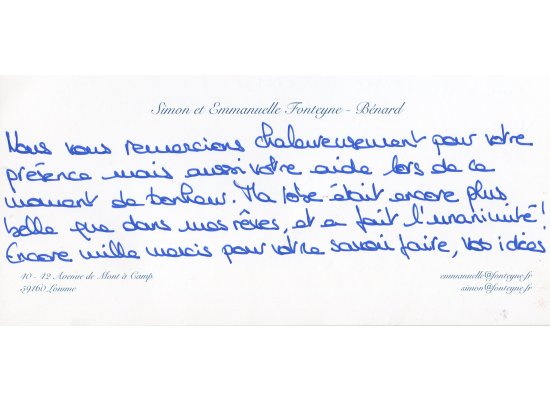 Simon et Emmanuelle Fonteyne - Bénard
Nous vous remercions chaleureusement pour votre
présence mais aussi votre aide lors de ce
moment de bonheur. Ma robe était encore plus
belle que dans mes rêves, et a fait l'unanimité!
Encore mille mercis pour votre savoir faire, vos idées
40 - 42 Avenue de Mont à Camp
59160 Lomme
emmanuelle@fonteyne.fr
simon@fonteyne.fr